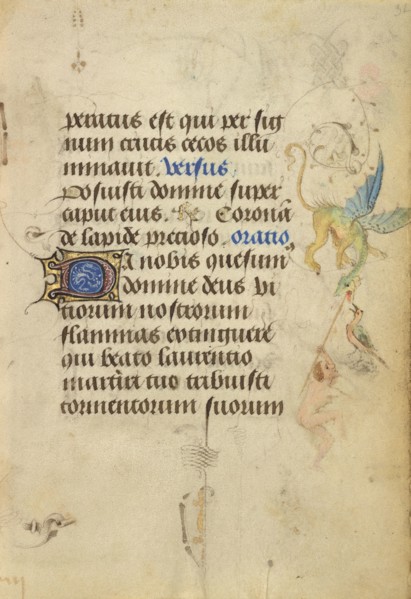 peratus est qui per sig
num crucis cecos illu
minauit. versus.
Posuisti domine super
caput eius. Coronā
de lapide precioso. oratio
Da nobis quesum9
domine deus vi
tiorum nostrorum
flammas extinguere
qui beato laurentio
martiri tuo tribuisti
tormentorum suorum